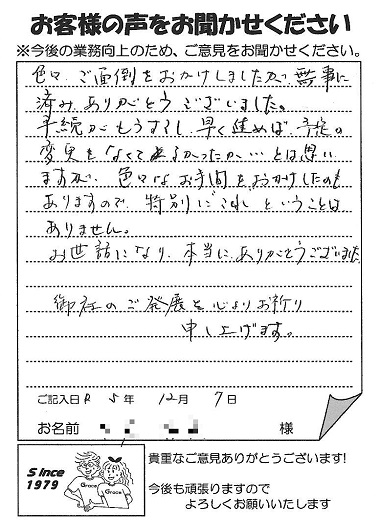 お客様の声をお聞かせください
※今後の業務向上のため、ご意見をお聞かせください。
色々ご面倒をおかけしましたが、無事に
済み、ありがとうございました。
手続がもう少し早く進めば、予定の
変更をなくて よかったか…とは思い
ますが、色々なお手間をおかけしたのも
ありますので、特別にこれということは
ありません。
お世話になり、本当にありがとうございました
御社のご発展を心よりお祈り
申し上げます。
ご記入日 R 5年 12月 7日
お名前 様
Since
1979
Grace
Grace
貴重なご意見ありがとうございます!
今後も頑張りますので
よろしくお願いいたします